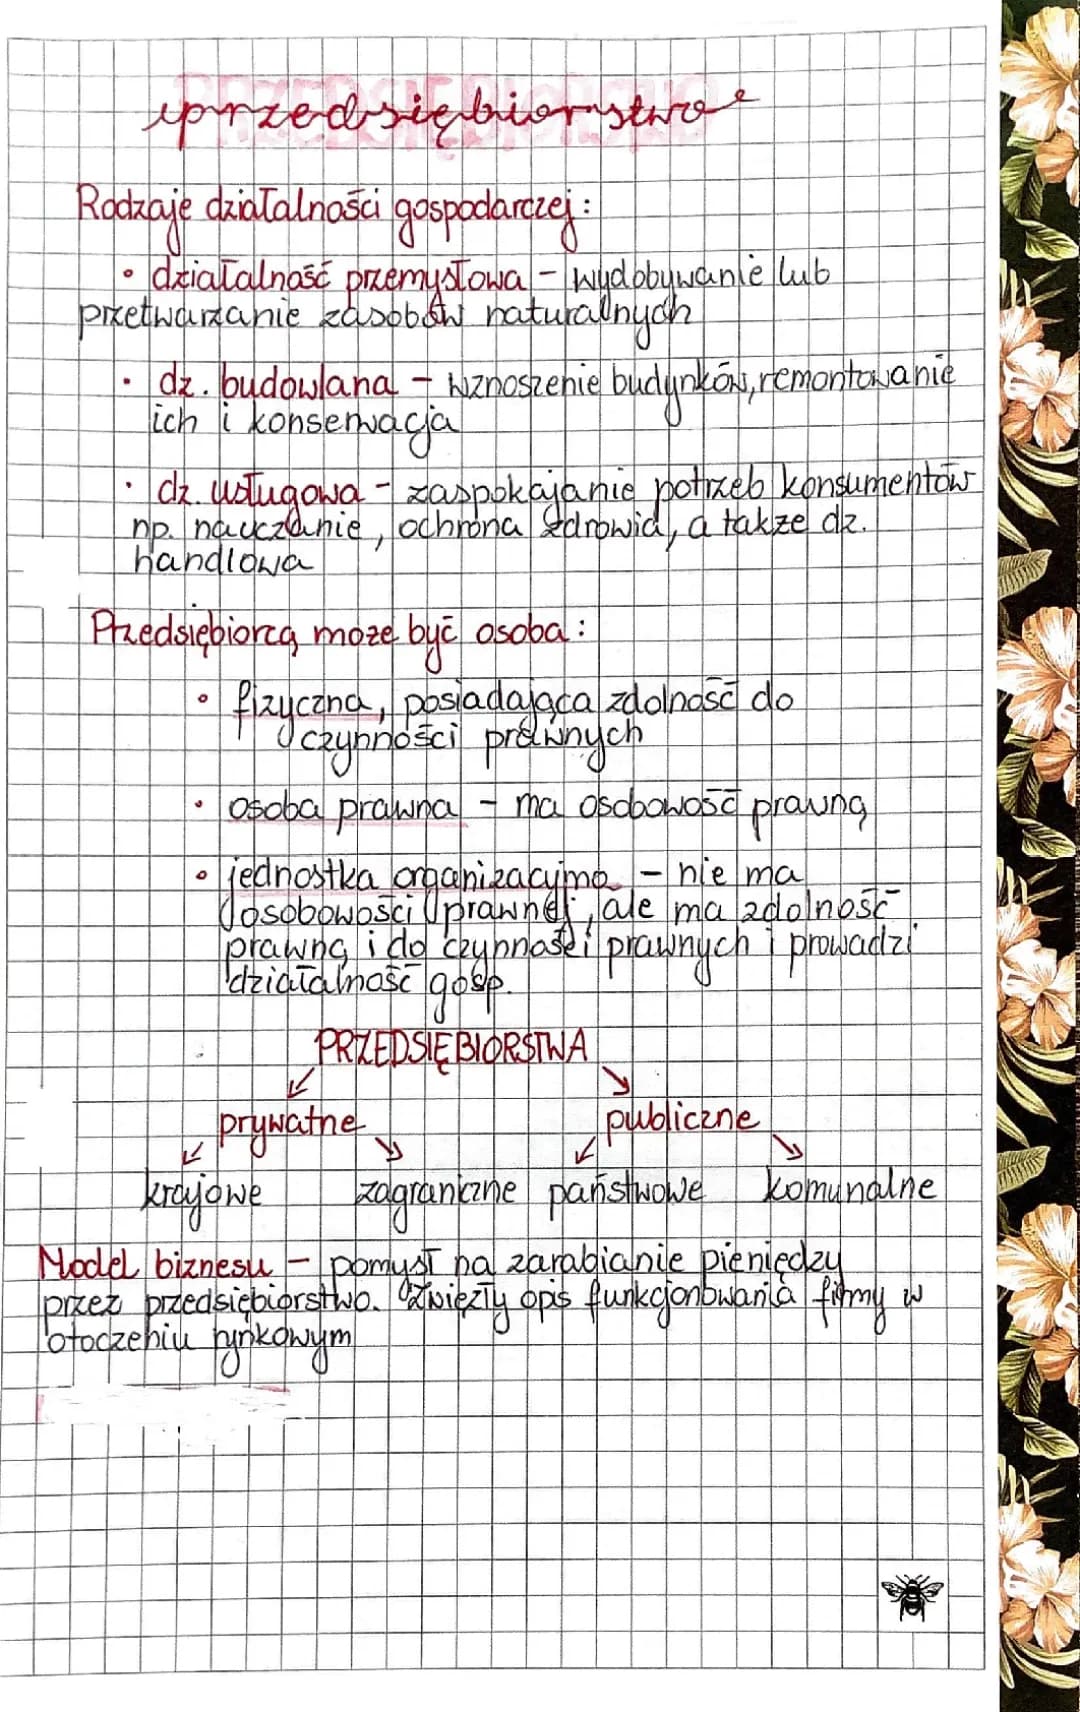 przedsiębiorstwo
Rodzaje działalności gospodarczej:
• działalność przemysłowa - wydobywanie lub
przetwarzanie zasobów naturalnych
• dz. budowlana - wznoszenie budynków, remontowanie
ich i konserwacja
• dz. usługowa - zaspokajanie potrzeb konsumentów
np. nauczanie, ochrona zdrowia, a także dz.
handlowa
Przedsiębiorcą może być osoba:
• fizyczna, posiadająca zdolność do
czynności prawnych
• osoba prawna - ma osobowość prawną
• jednostka organizacyjna - nie ma
osobowości prawnej, ale ma zdolność
prawną i do czynności prawnych i prowadzi
działalność gosp.
PRZEDSIĘBIORSTWA
prywatne publiczne
krajowe zagraniczne państwowe komunalne
Model biznesu - pomysł na zarabianie pieniędzy
przez przedsiębiorstwo. Zwięzły opis funkcjonowania firmy w
otoczeniu rynkowym